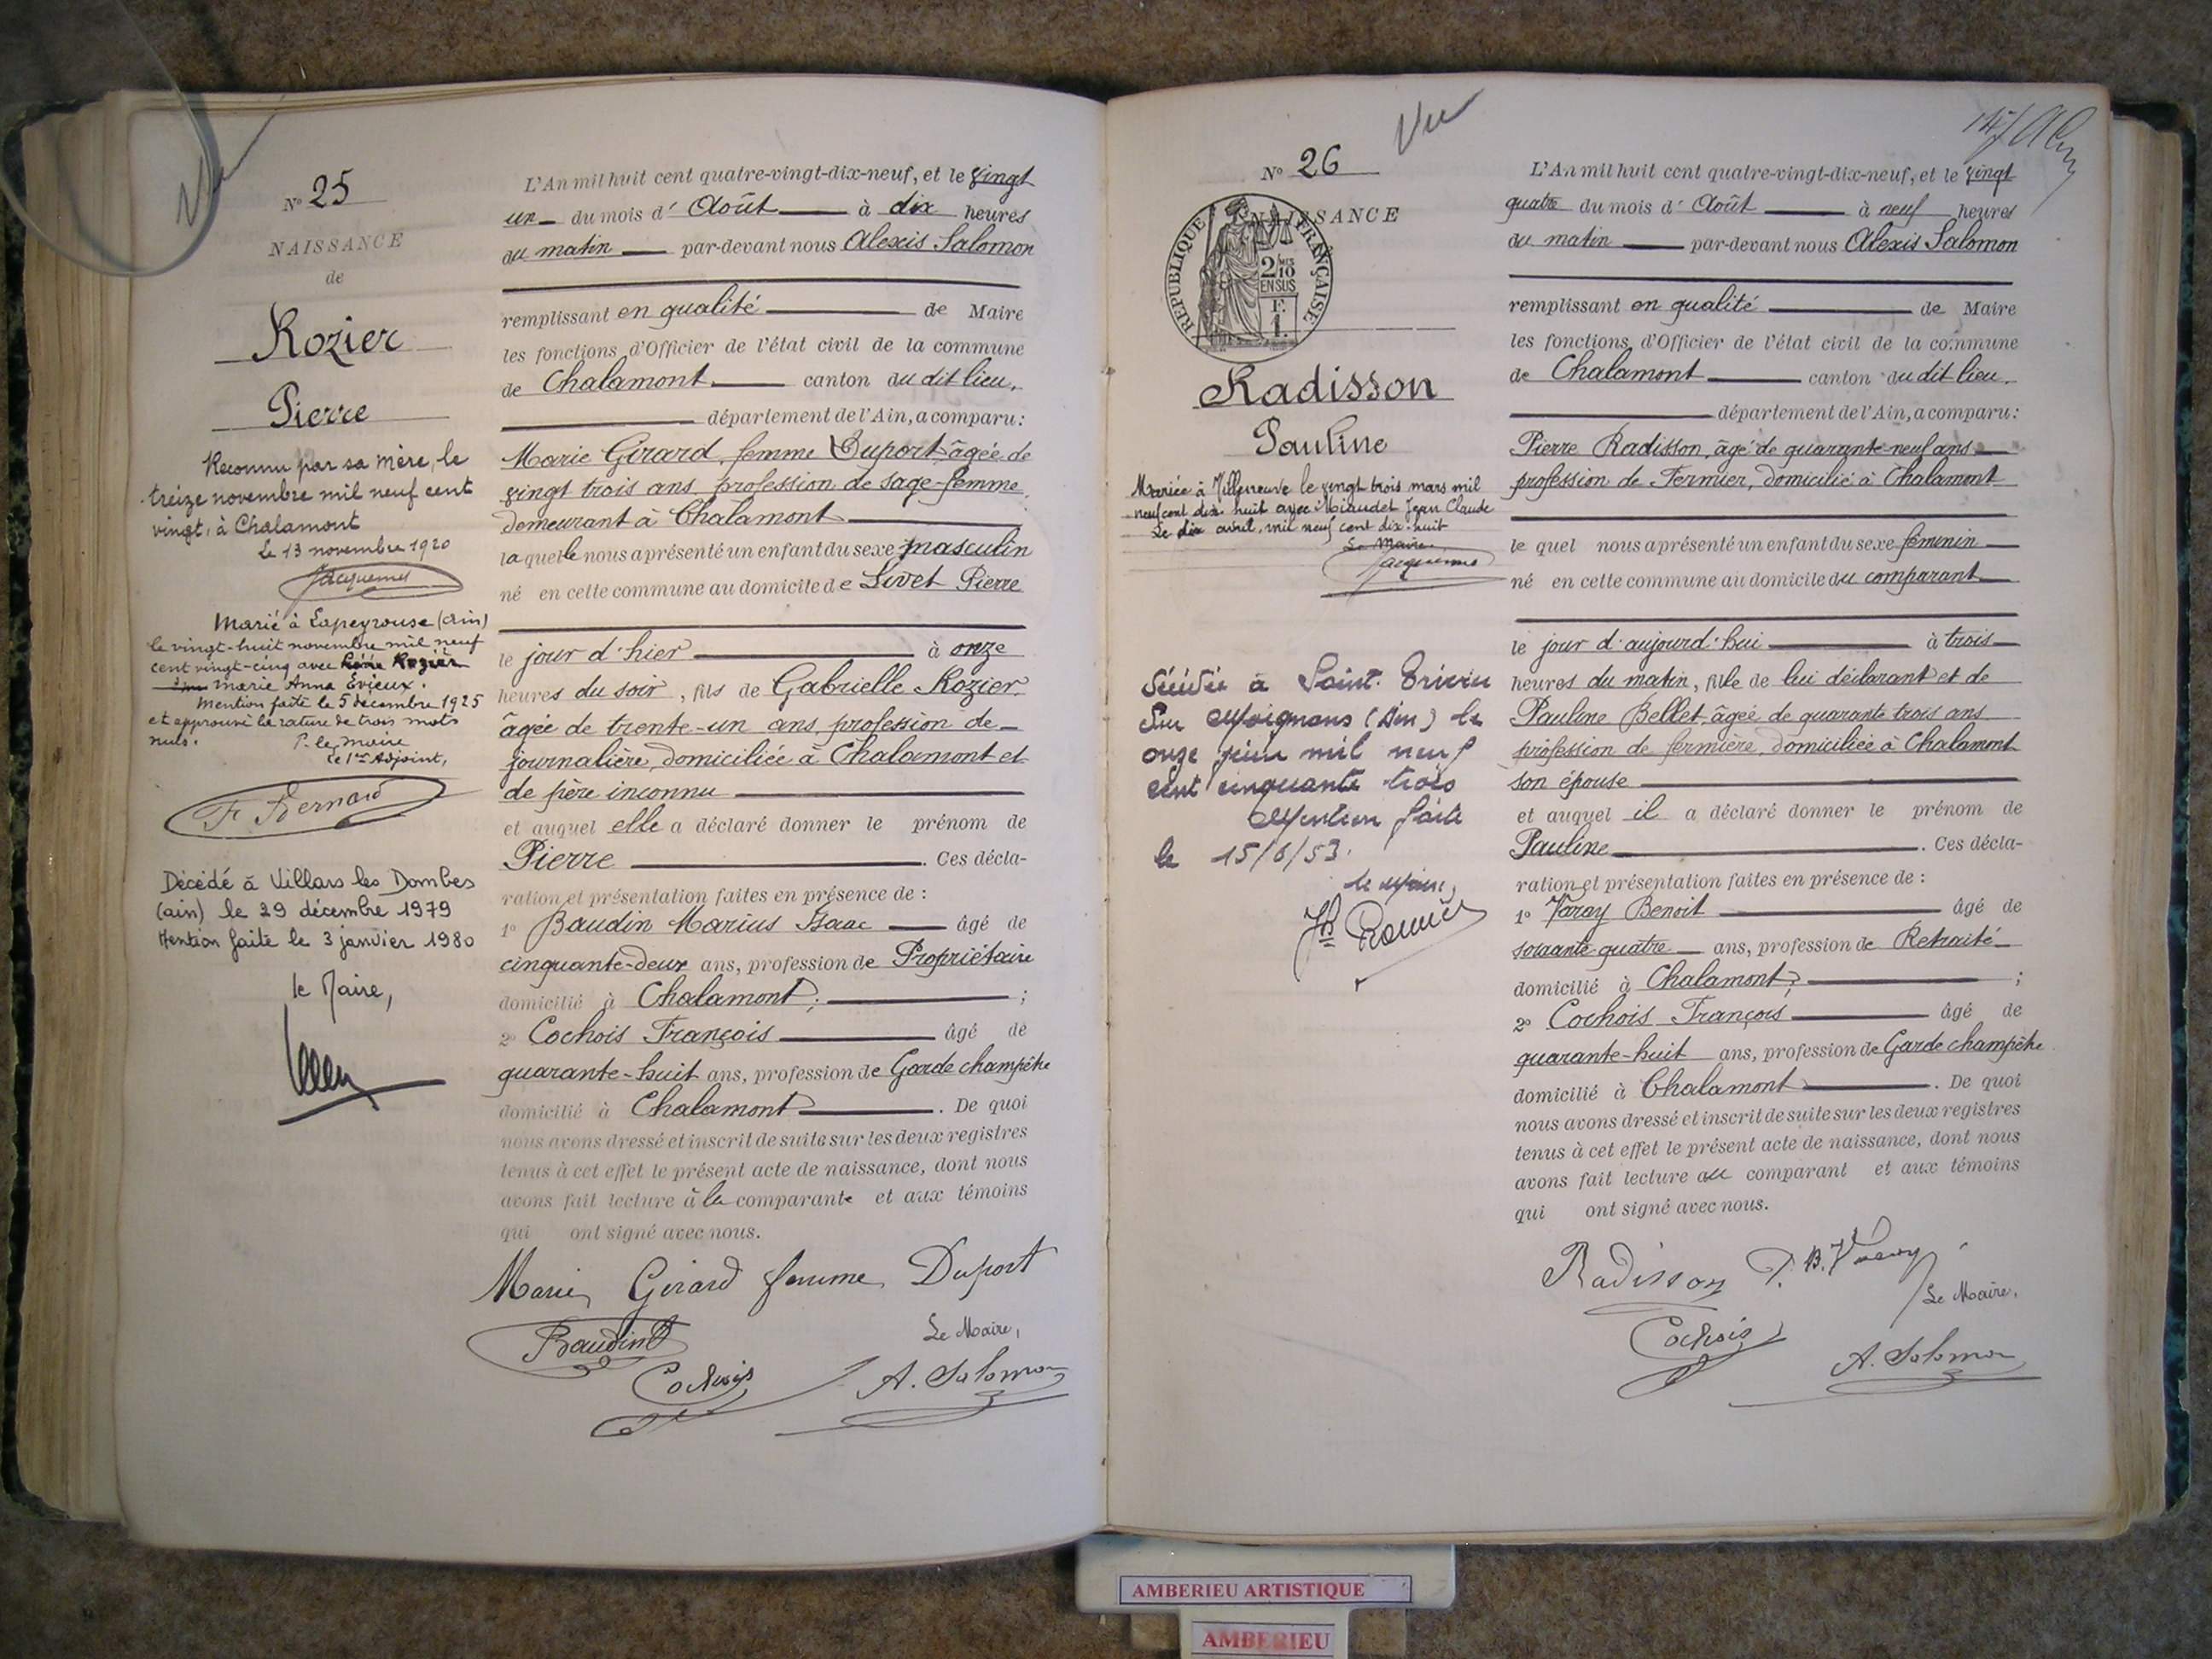 Vu
N° 25
NAISSANCE
de
Rozier
Pierre
Reconnu par sa mère, le
treize novembre mil neuf cent
vingt, à Chalamont
Le 13 novembre 1920
Jacquemet
Marié à Lapeyrouse (Ain)
le vingt-huit novembre mil neuf
cent vingt-cinq avec
Marie Anna Evieux.
Mention faite le 5 décembre 1925
et approuvé la rature de trois mots
nuls.
P. le maire
Le 1er Adjoint,
F. Bernard
Décédé à Villars les Dombes
(ain) le 29 décembre 1979
Mention faite le 3 janvier 1980
le Maire,
L'An mil huit cent quatre-vingt-dix-neuf, et le vingt
un du mois d' Août à dix heures
du matin par-devant nous Alexis Salomon
remplissant en qualité de Maire
les fonctions d'Officier de l'état civil de la commune
de Chalamont canton du dit lieu,
département de l'Ain, a comparu:
Marie Girard, femme Duport âgée de
vingt trois ans, profession de sage-femme,
demeurant à Chalamont
laquelle nous a présenté un enfant du sexe masculin
né en cette commune au domicile de Livet Pierre
le jour d'hier à onze
heures du soir, fils de Gabrielle Rozier,
âgée de trente-un ans, profession de
journalière, domiciliée à Chalamont et
de père inconnu
et auquel elle a déclaré donner le prénom de
Pierre . Ces décla-
ration et présentation faites en présence de :
1° Baudin Marius Isaac âgé de
cinquante-deux ans, profession de Propriétaire
domicilié à Chalamont; ;
2° Cochois François âgé de
quarante-huit ans, profession de Garde champêtre
domicilié à Chalamont . De quoi
nous avons dressé et inscrit de suite sur les deux registres
tenus à cet effet le présent acte de naissance, dont nous
avons fait lecture à la comparante et aux témoins
qui ont signé avec nous.
Marie Girard femme Duport
Baudin
Le Maire,
Cochois
A. Salomon
Vu
N° 26
NAISSANCE
REPUBLIQUE FRANÇAISE
2/10 MES
EN SUS
F.
1.
Radisson
Pauline
Mariée à Villeneuve le vingt trois mars mil
neuf cent dix-huit avec Miaudet Jean Claude
Le dix avril, mil neuf cent dix-huit
Le Maire,
Jacquemet
Décédée à Saint-Trivier
sur Moignans (Ain) le
onze juin mil neuf
cent cinquante trois
Mention faite
le 15/6/53.
le Maire,
L'An mil huit cent quatre-vingt-dix-neuf, et le vingt
quatre du mois d' Août à neuf heures
du matin par-devant nous Alexis Salomon
remplissant en qualité de Maire
les fonctions d'Officier de l'état civil de la commune
de Chalamont canton du dit lieu,
département de l'Ain, a comparu:
Pierre Radisson, âgé de quarante-neuf ans
profession de Fermier, domicilié à Chalamont
le quel nous a présenté un enfant du sexe féminin
né en cette commune au domicile du comparant
le jour d'aujourd'hui à trois
heures du matin, fille de lui déclarant et de
Pauline Bellet, âgée de quarante trois ans
profession de fermière, domiciliée à Chalamont
son épouse
et auquel il a déclaré donner le prénom de
Pauline . Ces décla-
ration et présentation faites en présence de :
1° Varay Benoit âgé de
soixante-quatre ans, profession de Retraité
domicilié à Chalamont; ;
2° Cochois François âgé de
quarante-huit ans, profession de Garde champêtre
domicilié à Chalamont . De quoi
nous avons dressé et inscrit de suite sur les deux registres
tenus à cet effet le présent acte de naissance, dont nous
avons fait lecture au comparant et aux témoins
qui ont signé avec nous.
Radisson P. B. Varay
Le Maire,
Cochois
A. Salomon
AMBERIEU ARTISTIQUE
AMBERIEU